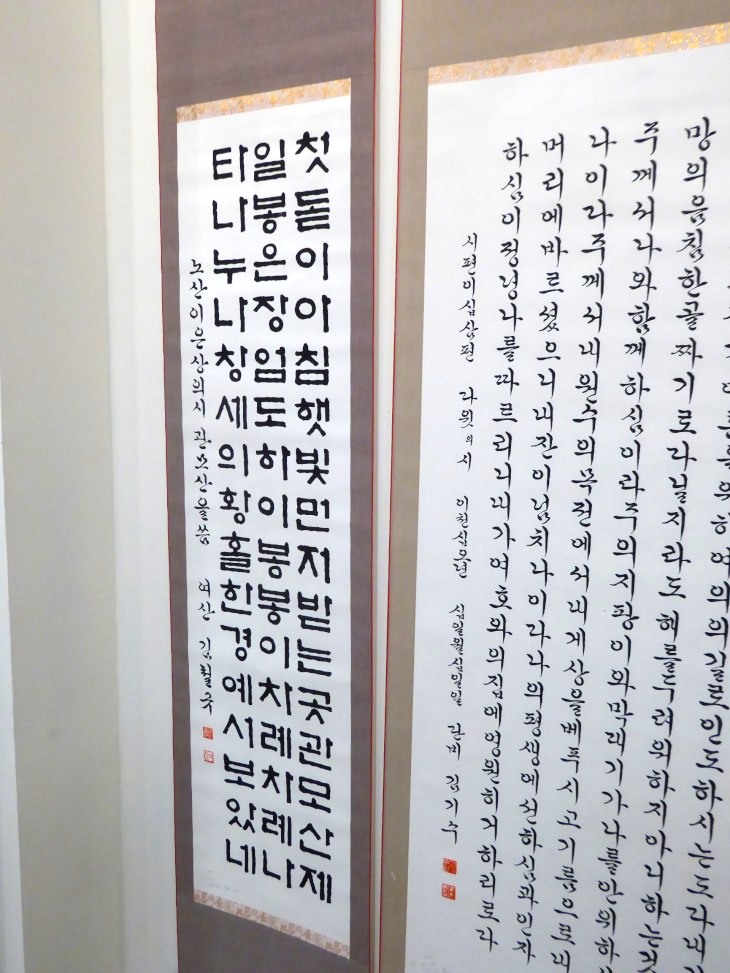 첫돋이아침햇빛먼저받는곳관모산제
일봉은장엄도하이봉봉이차례차례나
타나누나창세의황홀한경예서보았네
노산이은상의시 관모산을씀 여산 김월국
위하여의의길로인도하시는도다내
망의음침한골짜기로다닐지라도해를두려워하지아니하는것
주께서나와함께하심이라주의지팡이와막대기가나를안위하
나이다주께서내원수의목전에서내게상을베푸시고기름으로내
머리에바르셨으니내잔이넘치나이다나의평생에선하심과인자
하심이정녕나를따르리니내가여호와의집에영원히거하리로다
시편이십삼편 다윗의시 이천십오년 십일월십일일 단비 김기수